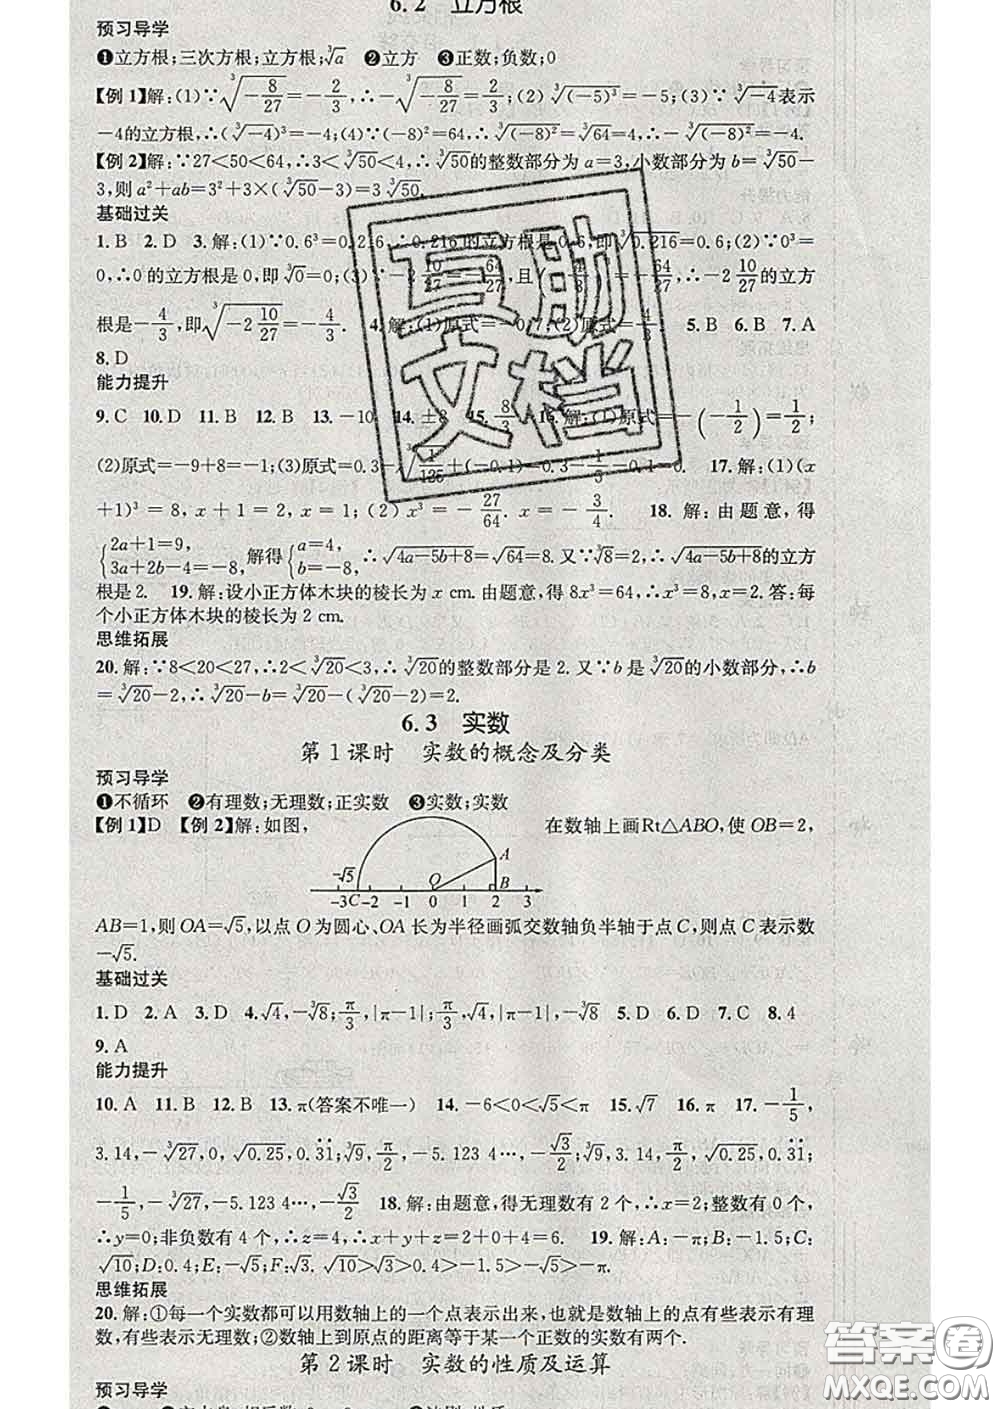 6.2 立方根
预习导学
❶立方根;三次方根;立方根;∛a ❷立方 ❸正数;负数;0
【例1】解:(1)∵∛(-8/27)=-2/3,∴-∛(-8/27)=2/3;(2)∛((-5)³)=-5;(3)∵∛(-4)表示
-4的立方根,∴(∛(-4))³=-4;(4)∵(-8)²=64,∴∛((-8)²)=∛64=4,∴-∛((-8)²)=-4.
【例2】解:∵27<50<64,∴3<∛50<4,∴∛50的整数部分为a=3,小数部分为b=∛50-
3,则a²+ab=3²+3×(∛50-3)=3∛50.
基础过关
1.B 2.D 3.解:(1)∵0.6³=0.216,∴0.216的立方根是0.6,即∛0.216=0.6;(2)∵0³=
0,∴0的立方根是0,即∛0=0;(3)∵-2 10/27=-64/27,且(-4/3)³=-64/27,∴-2 10/27的立方
根是-4/3,即∛(-2 10/27)=-4/3. 4.解:(1)原式=-0.7;(2)原式=4/3. 5.B 6.B 7.A
8.D
能力提升
9.C 10.D 11.B 12.B 13.-10 14.±8 15.8/3 16.解:(1)原式=-(-1/2)=1/2;
(2)原式=-9+8=-1;(3)原式=0.3-∛(1/125)+(-0.1)=0.3-1/5-0.1=0. 17.解:(1)(x
+1)³=8,x+1=2,x=1;(2)x³=-27/64.x=-3/4. 18.解:由题意,得
{2a+1=9, 3a+2b-4=-8, 解得{a=4, b=-8, ∴√(4a-5b+8)=√64=8.又∵∛8=2,∴√(4a-5b+8)的立方
根是2. 19.解:设小正方体木块的棱长为x cm.由题意,得8x³=64,∴x³=8,x=2.答:每
个小正方体木块的棱长为2 cm.
思维拓展
20.解:∵8<20<27,∴2<∛20<3,∴∛20的整数部分是2.又∵b是∛20的小数部分,∴b
=∛20-2,∴∛20-b=∛20-(∛20-2)=2.
6.3 实数
第1课时 实数的概念及分类
预习导学
❶不循环 ❷有理数;无理数;正实数 ❸实数;实数
【例1】D 【例2】解:如图, 在数轴上画Rt△ABO,使OB=2,
-√5 O A B
-3 C -2 -1 0 1 2 3
AB=1,则OA=√5,以点O为圆心、OA长为半径画弧交数轴负半轴于点C,则点C表示数
-√5.
基础过关
1.D 2.A 3.D 4.√4,-∛8;π/3,|π-1|;π/3,|π-1|,√4,-∛8 5.D 6.D 7.C 8.4
9.A
能力提升
10.A 11.B 12.B 13.π(答案不唯一) 14.-6<0<√5<π 15.√7 16.π 17.-1/5,
3.14,-∛27,0,√0.25,0.3̇1̇;π/2,-5.123 4…,-√3/2;3.14,π/2,√0.25,0.3̇1̇;
-1/5,-∛27,-5.123 4…,-√3/2 18.解:由题意,得无理数有2个,∴x=2;整数有0个,
∴y=0;非负数有4个,∴z=4,∴x+y+z=2+0+4=6. 19.解:A:-π;B:-1.5;C:
√10;D:0.4;E:-√5;F:√3. √10>√3>0.4>-1.5>-√5>-π.
思维拓展
20.解:①每一个实数都可以用数轴上的一个点表示出来,也就是数轴上的点有些表示有理
数,有些表示无理数;②数轴上到原点的距离等于某一个正数的实数有两个.
第2课时 实数的性质及运算
预习导学
互助文档
答案圈
MXQE.COM